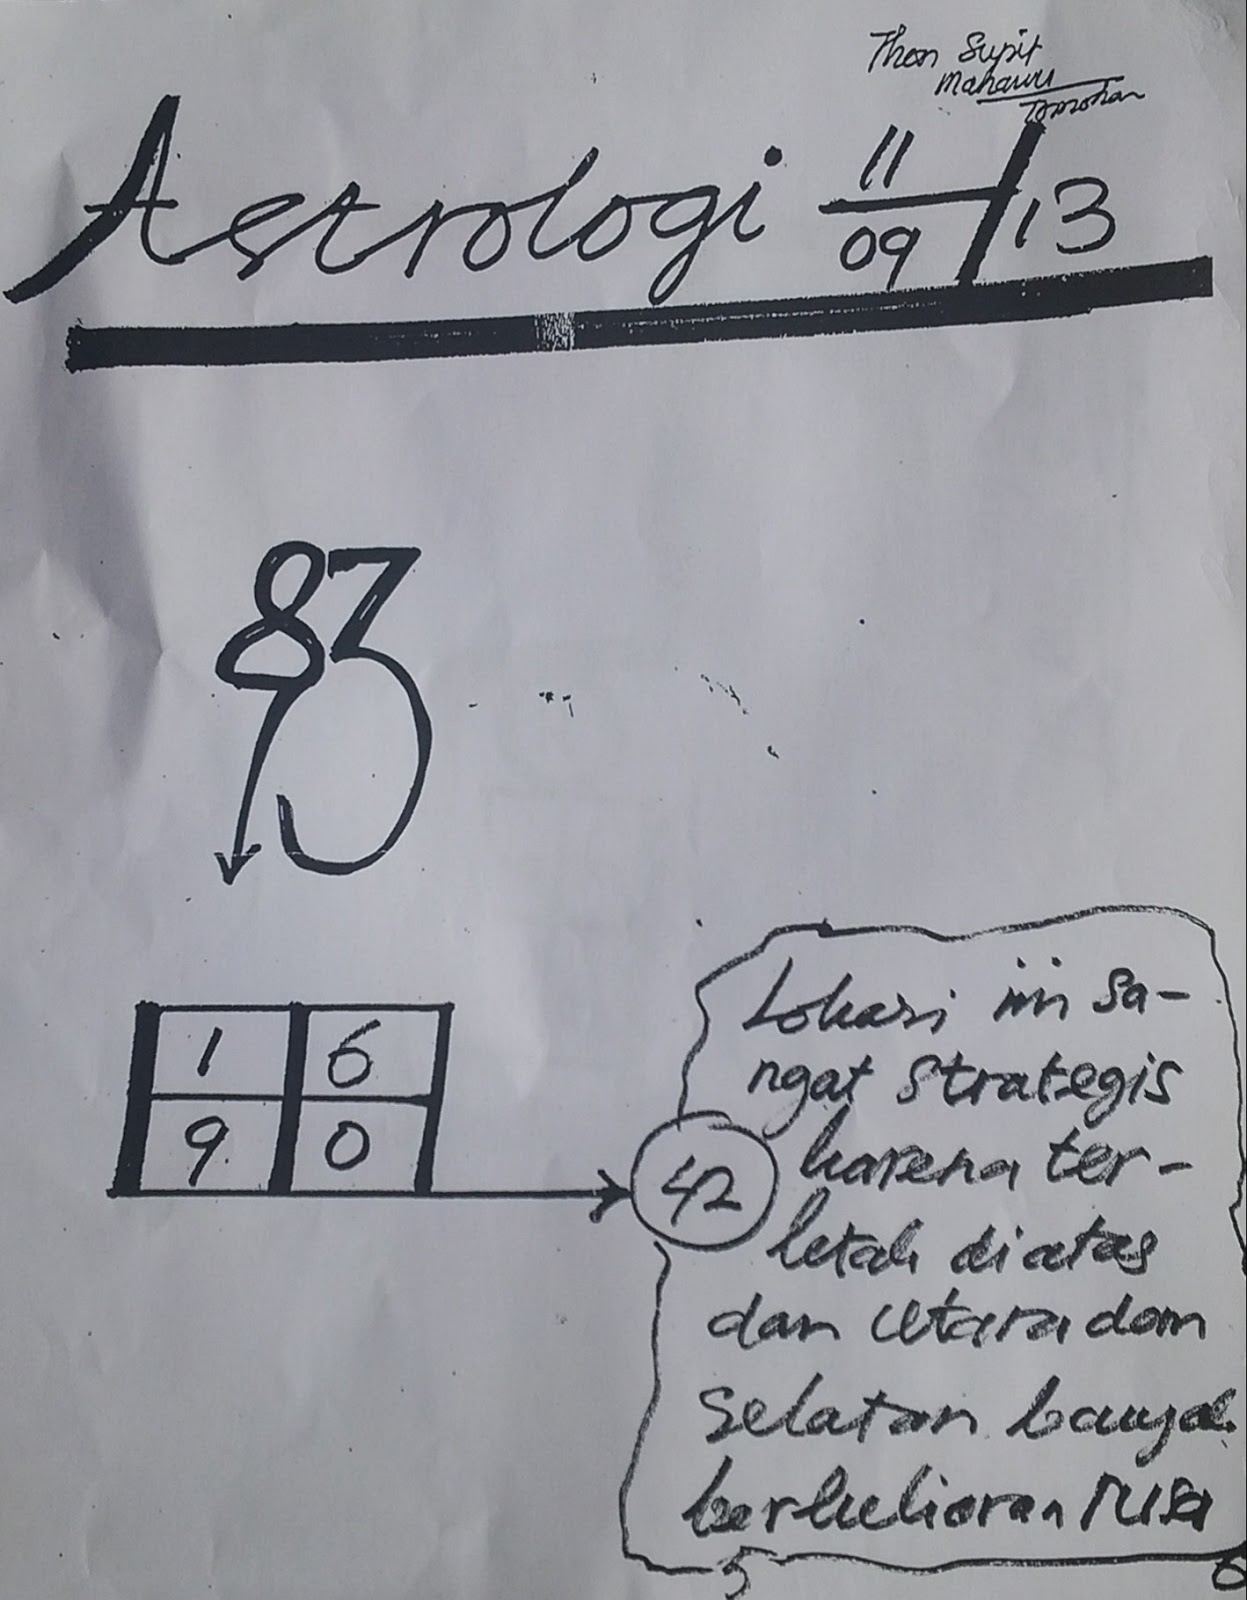 Thon Supit
Mahawu
Tomohon
Astrologi 11/09/13
83
9
1 6
9 0
42
Lokasi ini sa-
ngat strategis
karena ter-
letak diatas
dan utara dan
selatan banyak
berkeliaran rusa
5 6